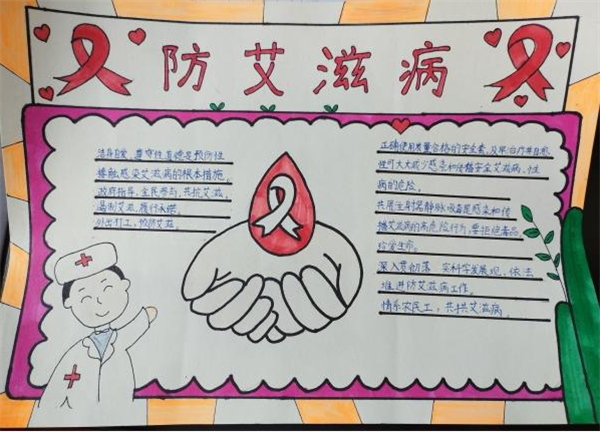 防艾滋病
洁身自爱、遵守性道德是预防性
接触感染艾滋病的根本措施。
政府指导,全民参与,共抗艾滋,
遏制艾滋,履行承诺。
外出打工,预防艾滋。
正确使用质量合格的安全套,及早治疗并自愿
性可大大减少感染和传播安全艾滋病、性
病的危险。
共用注射器静脉吸毒是感染和传
播艾滋病的高危险行为,要拒绝毒品
珍爱生命。
深入贯彻落 实科学发展观,依法
推进防艾滋病工作。
情系农民工,共抗艾滋病。